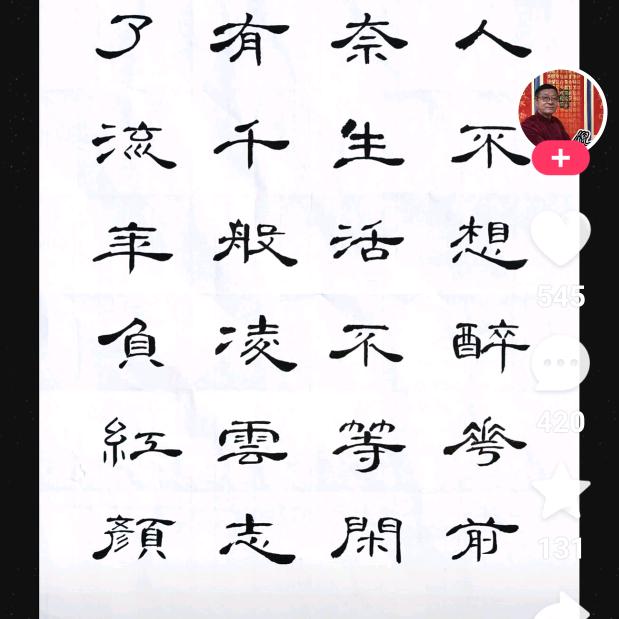 人不想醉花前
奈生活不等閑
有千般凌雲志
了流年負紅顏
545
420
131